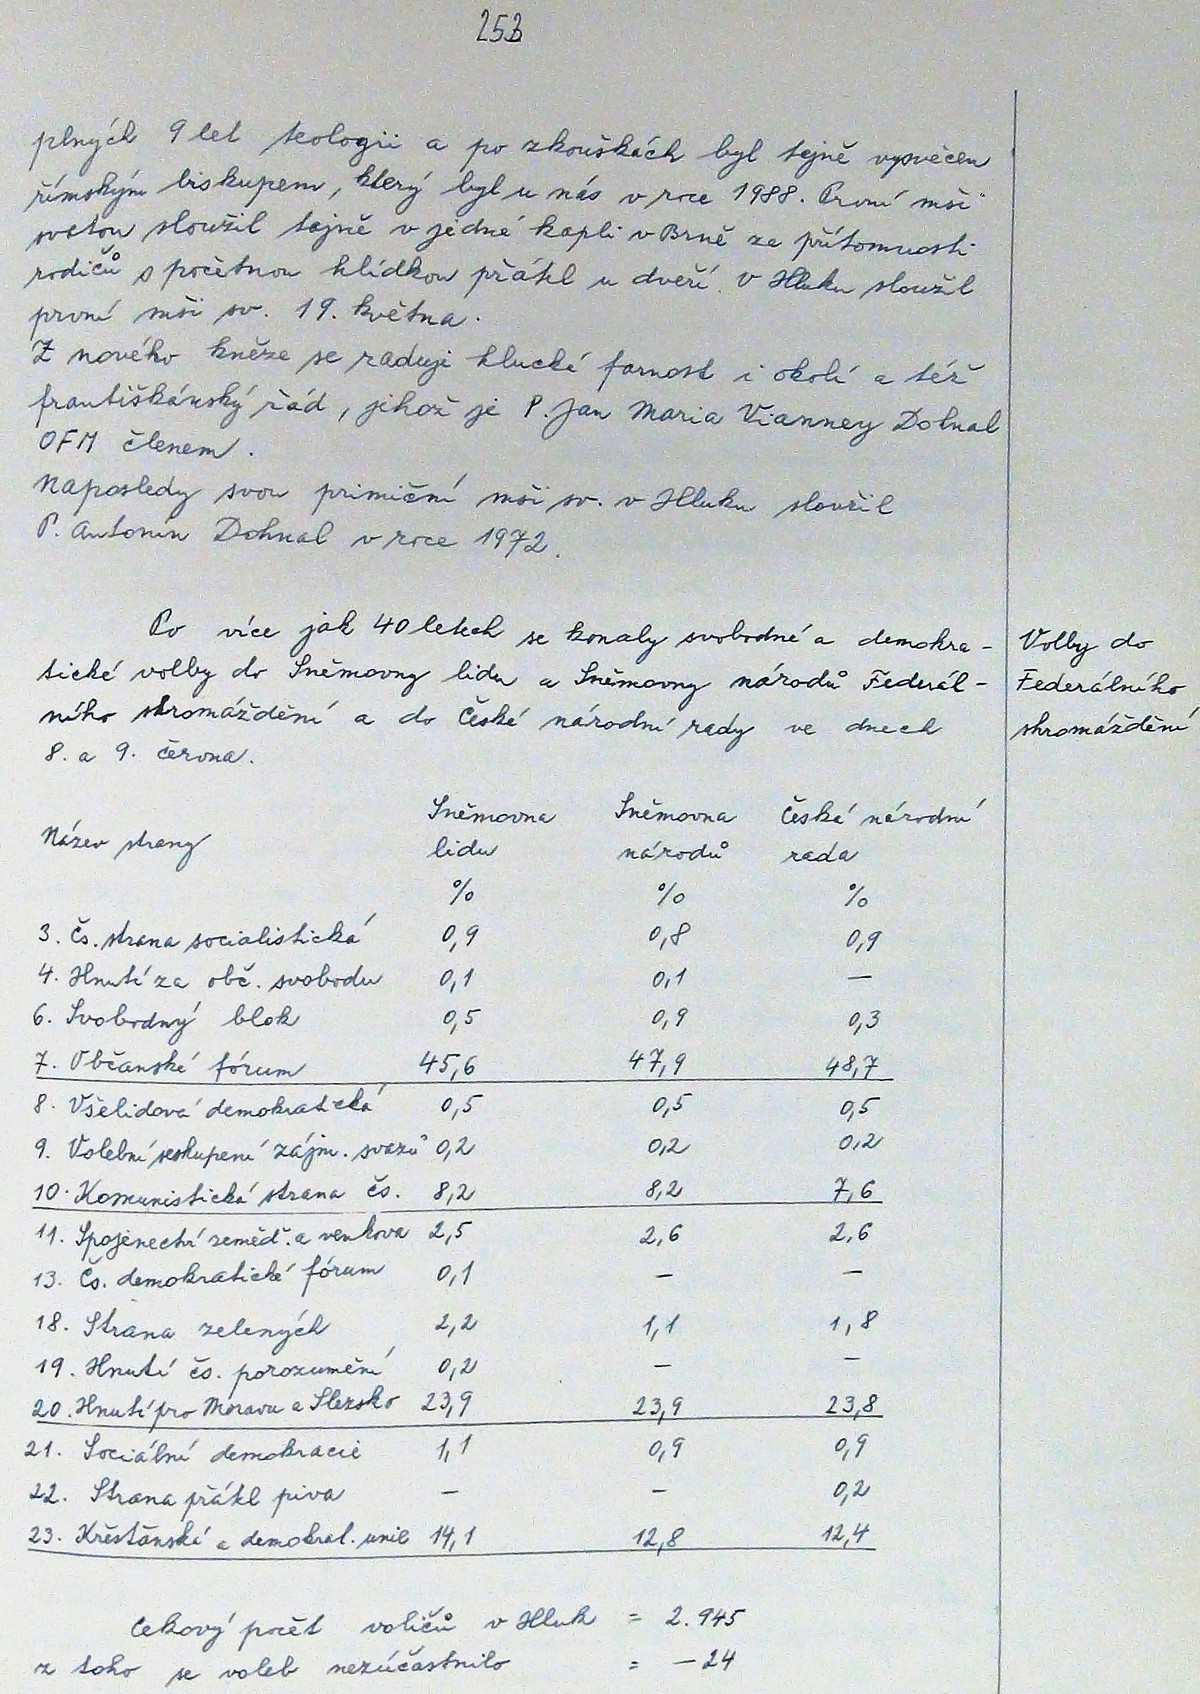 253
plných 9 let teologii a po zkouškách byl tejně vysvěcen
římským biskupem, který byl u nás v roce 1988. První mši
svatou sloužil tejně v jedné kapli v Brně za přítomnosti
rodičů s početnou hlídkou přátel u dveří. V Hluku sloužil
první mši sv. 19. května.
Z nového kněze se raduje hlucká farnost i okolí a též
františkánský řád, jehož je P. Jan Maria Vianney Dohnal
OFM členem.
Naposledy svou primiční mši sv. v Hluku sloužil
P. Antonín Dohnal v roce 1972.
Po více jak 40 letech se konaly svobodné a demokra-
tické volby do Sněmovny lidu a Sněmovny národů Federál-
ního shromáždění a do České národní rady ve dnech
8. a 9. června.
Volby do
Federálního
shromáždění
Název strany Sněmovna lidu Sněmovna národů Česká národní rada
% % %
3. Čs. strana socialistická 0,9 0,8 0,9
4. Hnutí za obč. svobodu 0,1 0,1 —
6. Svobodný blok 0,5 0,9 0,3
7. Občanské fórum 45,6 47,9 48,7
8. Všelidová demokratická 0,5 0,5 0,5
9. Volební seskupení zájm. svazů 0,2 0,2 0,2
10. Komunistická strana čs. 8,2 8,2 7,6
11. Spojenectví zeměd. a venkova 2,5 2,6 2,6
13. Čs. demokratické fórum 0,1 — —
18. Strana zelených 2,2 1,1 1,8
19. Hnutí čs. porozumění 0,2 — —
20. Hnutí pro Moravu a Slezsko 23,9 23,9 23,8
21. Sociální demokracie 1,1 0,9 0,9
22. Strana přátel piva — — 0,2
23. Křesťánská a demokrat. unie 14,1 12,8 12,4
Cekový počet voličů v Hluk = 2.945
z toho se voleb nezúčastnilo = — 24